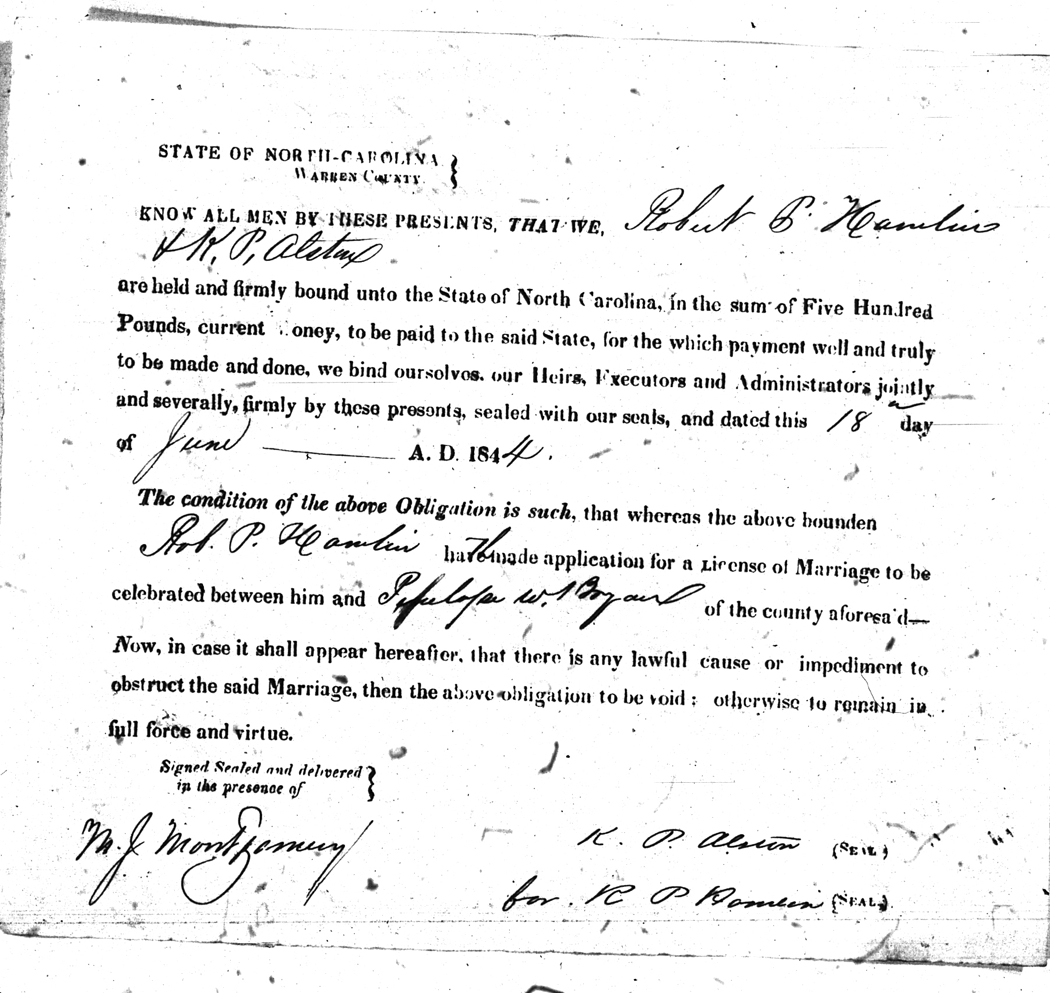 STATE OF NORTH-CAROLINA
WARREN COUNTY.
KNOW ALL MEN BY THESE PRESENTS, THAT WE, Robert P. Hamlin
& K. P. Alston
are held and firmly bound unto the State of North Carolina, in the sum of Five Hundred
Pounds, current money, to be paid to the said State, for the which payment well and truly
to be made and done, we bind ourselves, our Heirs, Executors and Administrators jointly
and severally, firmly by these presents, sealed with our seals, and dated this 18 day
of June A. D. 1844.
The condition of the above Obligation is such, that whereas the above bounden
Rob. P. Hamlin hath made application for a License of Marriage to be
celebrated between him and of the county aforesa'd—
Now, in case it shall appear hereafter, that there is any lawful cause or impediment to
obstruct the said Marriage, then the above obligation to be void: otherwise to remain in
full force and virtue.
Signed Sealed and delivered
in the presence of
M. J. Montgomery
K. P. Alston (SEAL)
for. R P Hamlin (SEAL)